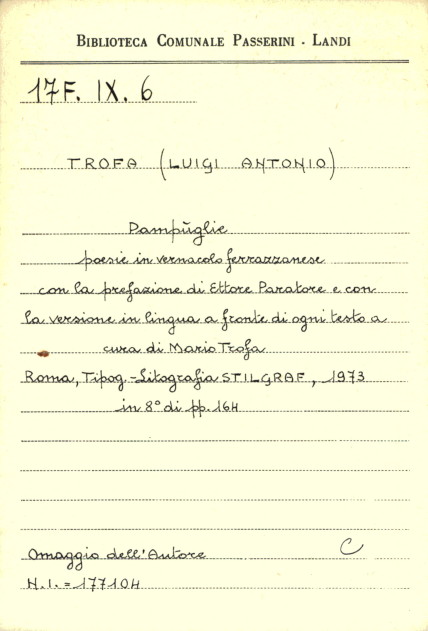 BIBLIOTECA COMUNALE PASSERINI - LANDI
17F. IX. 6
TROFA (LUIGI ANTONIO)
Pampùglie
poesie in vernacolo ferrazzanese
con la prefazione di Ettore Paratore e con
la versione in lingua a fronte di ogni testo a
cura di Mario Trofa
Roma, Tipog.-Litografia STILGRAF, 1973
in 8° di pp. 164
Omaggio dell'Autore C
N.I. = 177104